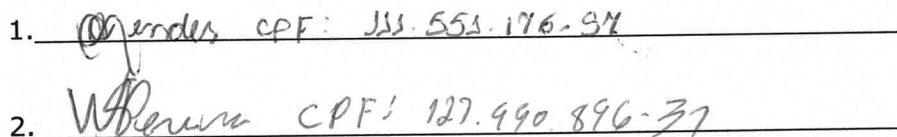 1. CPF: 111.551.176-97
2. CPF: 127.990.896-37